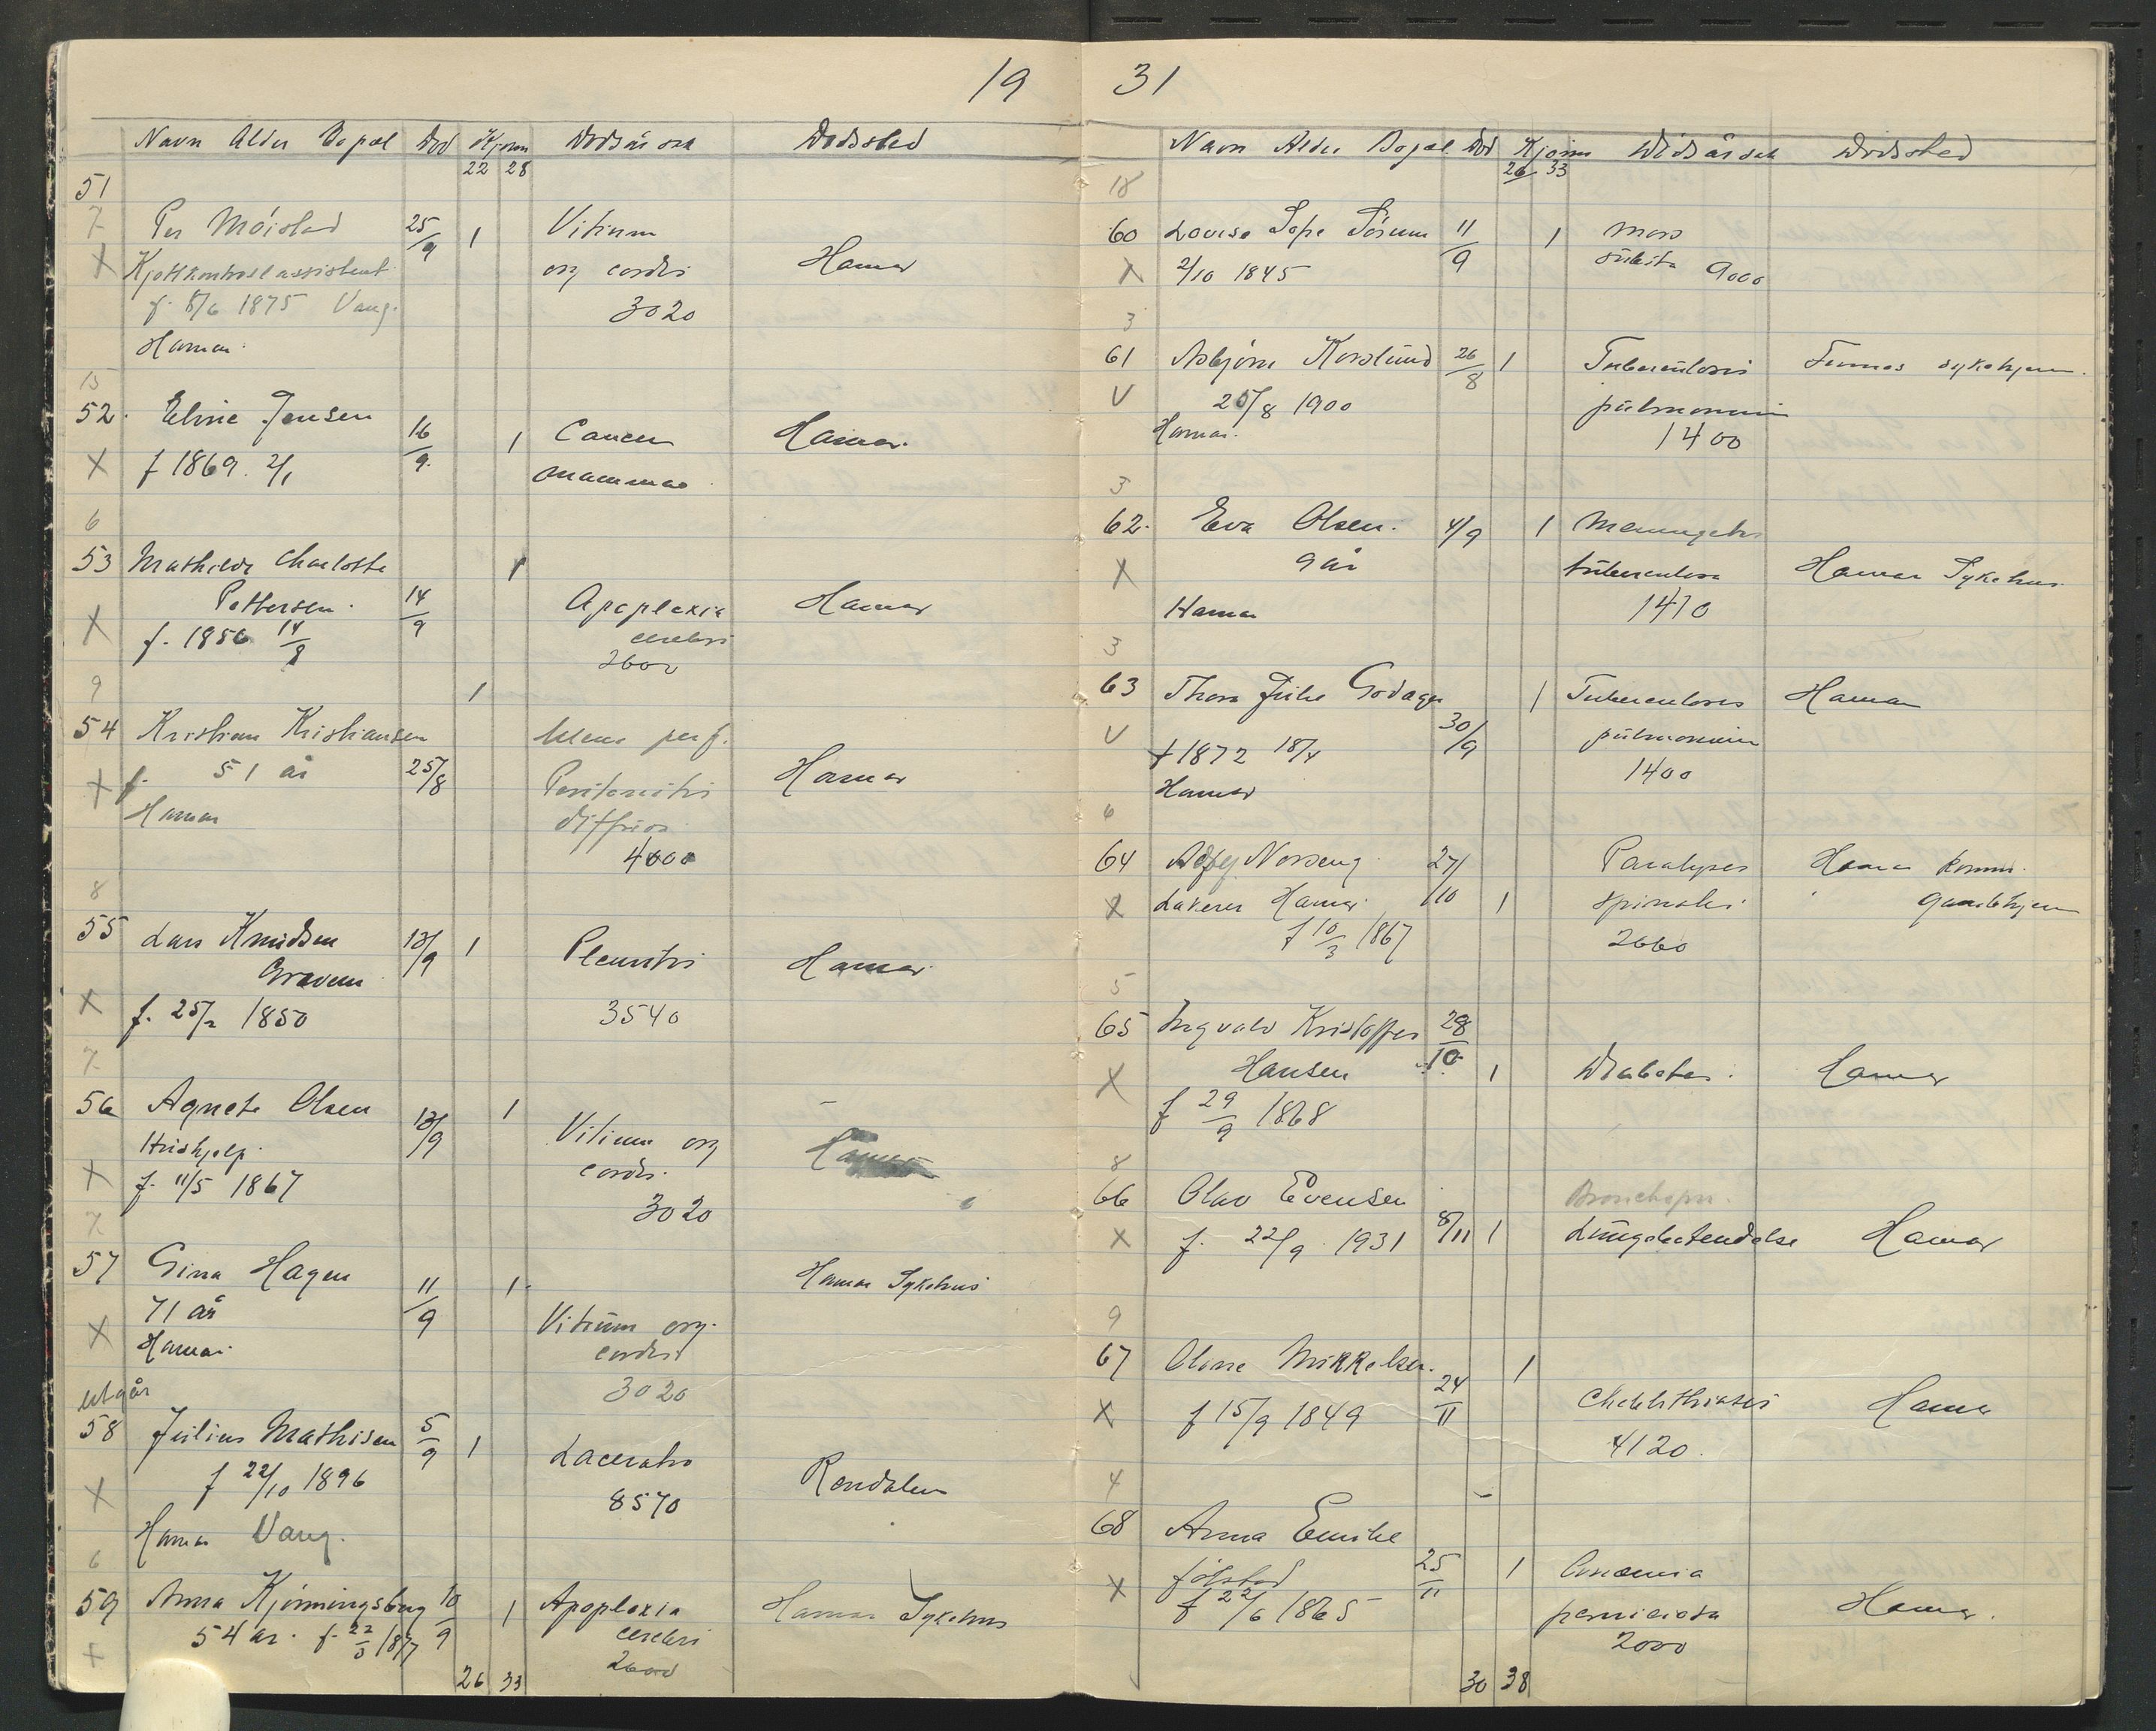 19
Navn Alder Bopæl Död Kjönn Dödsårsak Dödssted
22 28
51
7
Per Möistad 25/9 1 Vitium
X Kjöttkontrollassistent org cordis Hamar
f. 8/6 1875 Vang. 3020
Hamar.
15
52. Eline Jensen 16/9. 1 Cancer Hamar.
X f 1869. 2/1 mammae
6
53 Mathilde Charlotte 1
Pettersen. 14/9 Apoplexia Hamar
X f. 1856 14/8 cerebri
2600
9
1
54 Kristian Kristiansen Ulcus perf.
X f. 51 år 25/8 Peritonitis Hamar
Hamar diffusa
4000
8
55 Lars Knudsen 13/9 1 Pleuritis Hamar
Graven
X f. 25/2 1850 3540
7
56 Agnete Olsen 13/9 1 Vitium org Hamar
Hushjelp. cordis.
X f. 11/5 1867 3020
7
57 Gina Hagen 11/9 1 Hamar Sykehus
71 år Vitium org.
X Hamar. cordis
3020
utgår
58 Julius Mathisen 5/9 1 Laceratio
X f 22/10 1896 8570 Rendalen
Hamar Vang.
6
59 Anna Kjönningsberg 10/9 1 Apoplexia Hamar Sykehus
X 54 år. f. 22/3 1877 cerebri
2600
26 33
31
Navn Alder Bopæl Död Kjönn Dödsårsak Dödssted
26 33
18
60 Lovise Sörum 11/9 1 Mors
X 2/10 1845 subita 9000
3
61 Asbjörn Korslund 26/8 1 Tuberculosis Furnes sykehjem.
V 25/8 1900 pulmonum
Hamar. 1400
3
62. Eva Olsen. 4/9 1 Meningitis
X 9 år tuberculosa Hamar Sykehus.
Hamar 1410
3
63 Thora Julie Godager 30/9 1 Tuberculosis Hamar
V f 1872 18/4 pulmonum
Hamar 1400
6
64 Norseng 27/10 Paralysis Hamar komm.
X Lakerer Hamar. 1 spinalis gamlehjem
f 10/3 1867 2660
5
65 Ingvald Kristoffer 28/10
X Hansen 1 Diabetes. Hamar
f 29/9 1868
8
66 Olav Evensen Bronchopn.
X f. 22/9 1931 8/11 1 Lungebetendelse Hamar
9
67 Oline Mikkelsen. 24/11 1
X f 15/9 1849 Cholelithiasis Hamar
4120.
4
68 Anna Emilie
X 25/11 1 Anæmia
f 22/6 1865 perniciosa Hamar.
2000
30 38